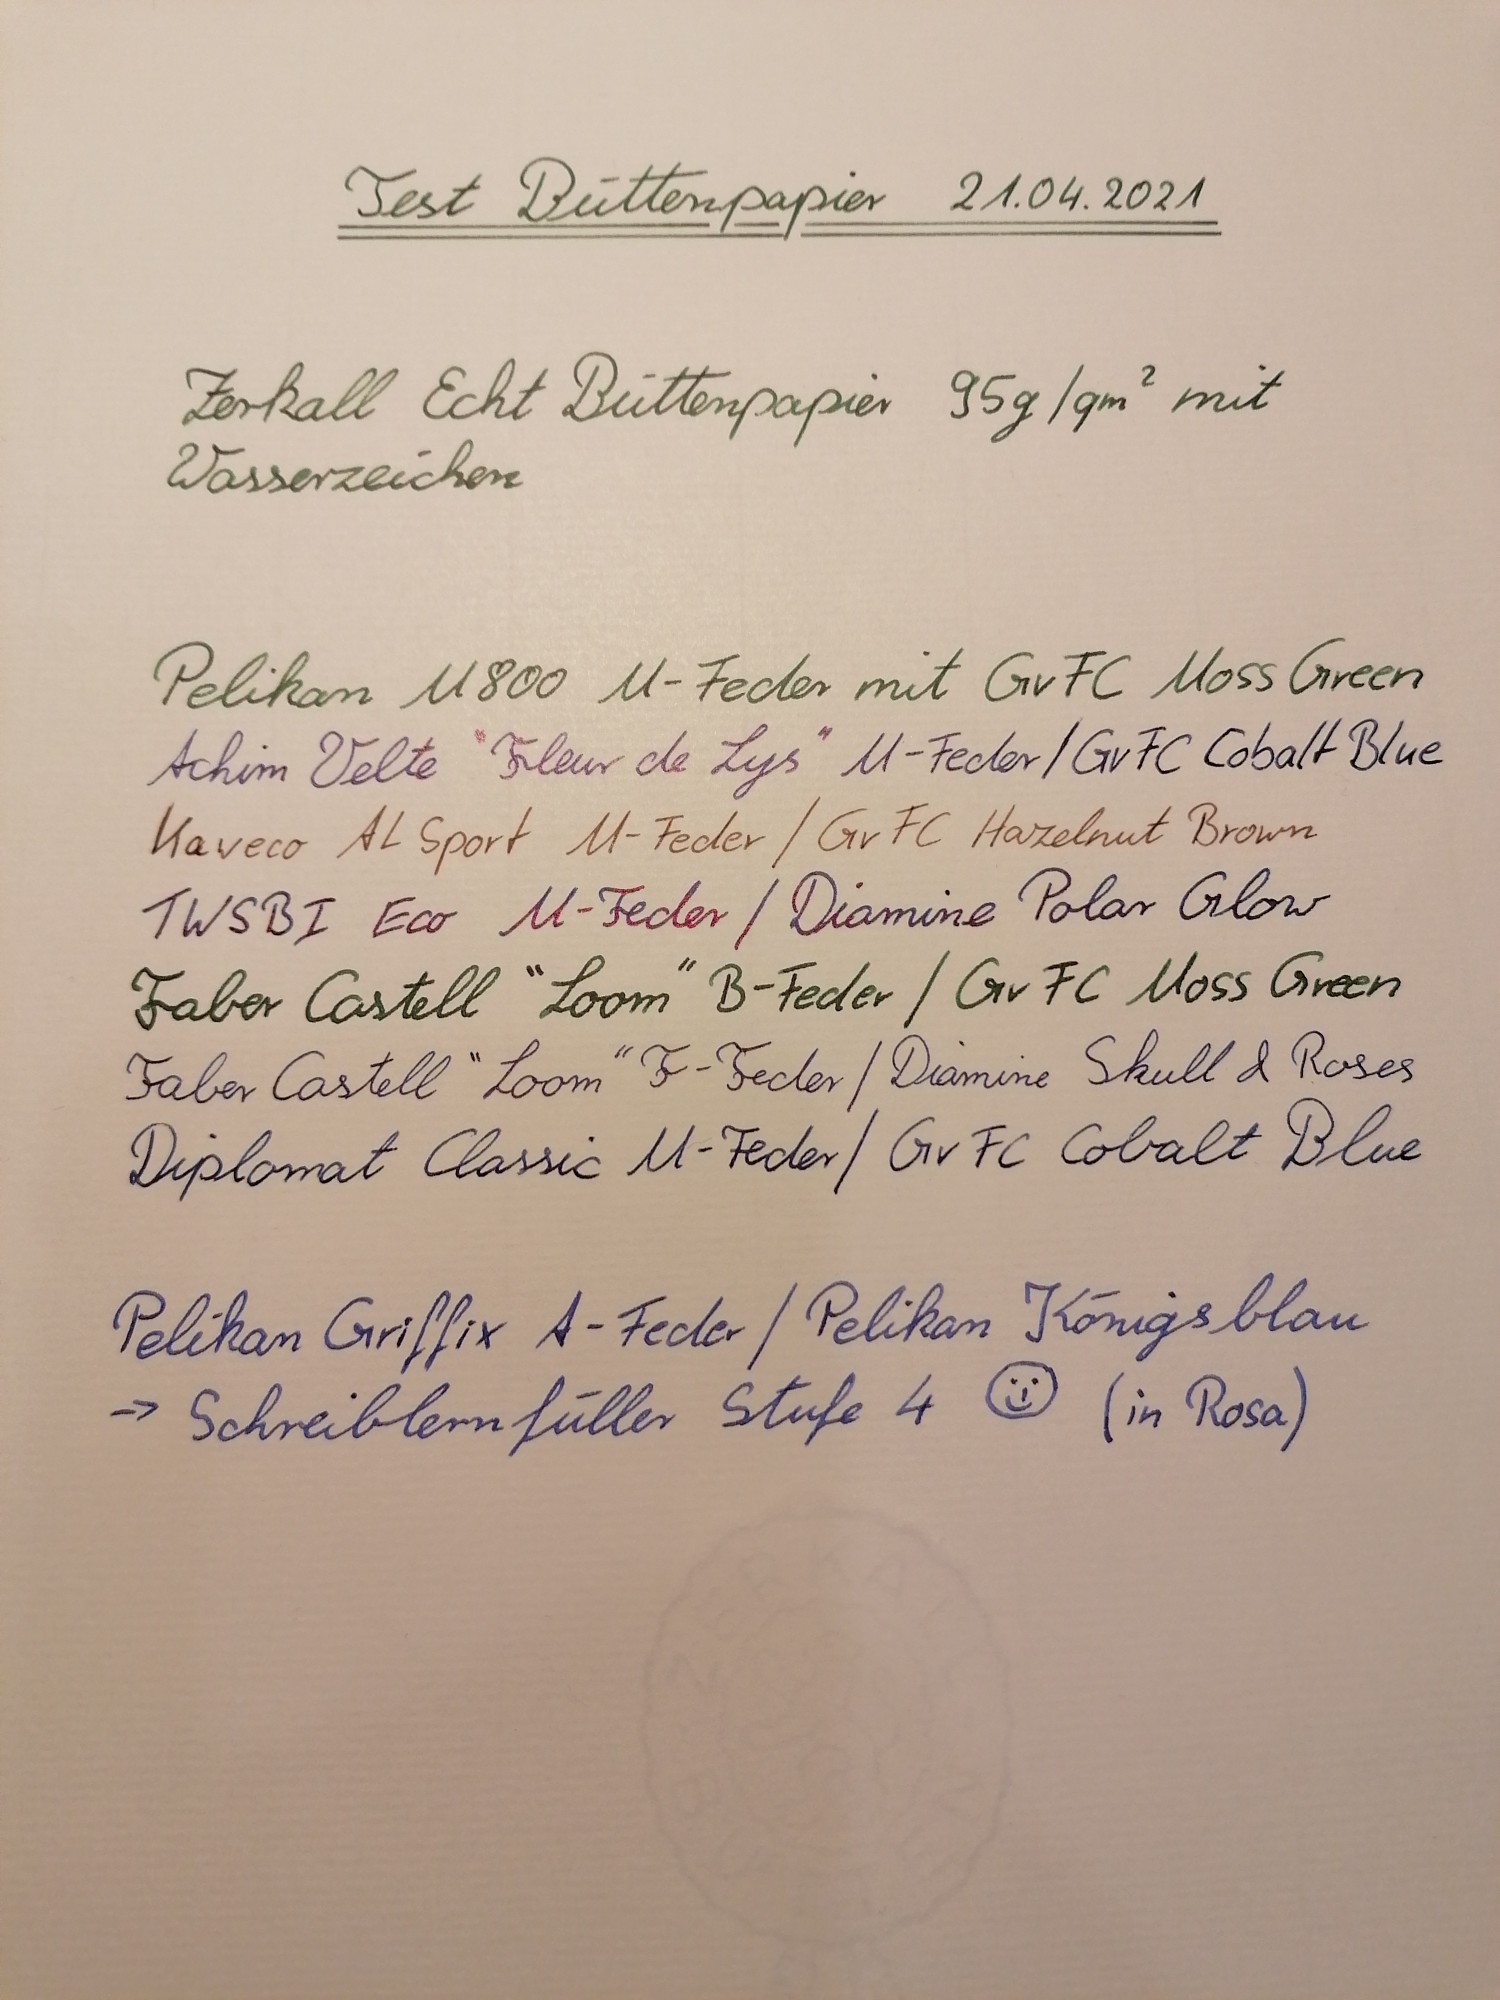 Test Büttenpapier 21.04.2021
Zerkall Echt Büttenpapier 95g/qm² mit
Wasserzeichen
Pelikan M800 M-Feder mit GvFC Moss Green
Achim Velte "Fleur de Lys" M-Feder/GvFC Cobalt Blue
Kaveco AL Sport M-Feder / GvFC Hazelnut Brown
TWSBI Eco M-Feder / Diamine Polar Glow
Faber Castell "Loom" B-Feder / GvFC Moss Green
Faber Castell "Loom" F-Feder / Diamine Skull & Roses
Diplomat Classic M-Feder / GvFC Cobalt Blue
Pelikan Griffix A-Feder / Pelikan Königsblau
→ Schreiblernfüller Stufe 4 ☺ (in Rosa)